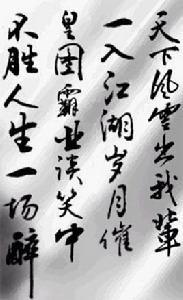 天下风云出我辈
一入江湖岁月催
皇图霸业谈笑中
不胜人生一场醉